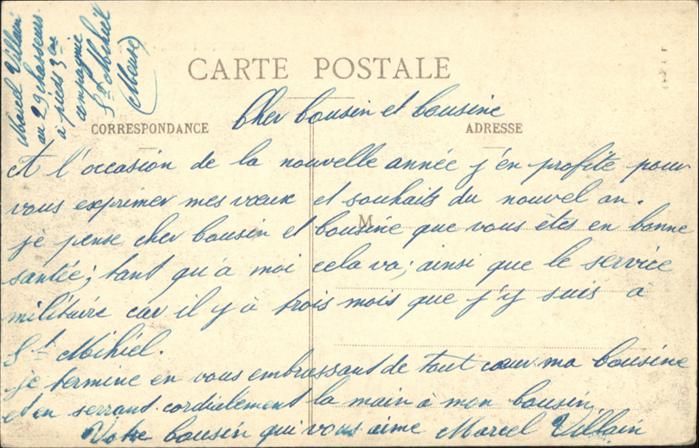 Marcel Villain
au 29 chasseurs
à pieds 3me
compagnie
St Mihiel
(Meuse)
CARTE POSTALE
Cher Cousin et Cousine
CORRESPONDANCE
ADRESSE
A l'occasion de la nouvelle année j'en profite pour
vous exprimer mes vœux et souhaits du nouvel an.
M
je pense cher Cousin et Cousine que vous êtes en bonne
santée; tant qu'à moi cela va; ainsi que le service
militaire car il y à trois mois que j'y suis à
St Mihiel.
je termine en vous embrassant de tout cœur ma Cousine
et en serrant cordialement la main à mon Cousin.
Votre Cousin qui vous aime Marcel Villain